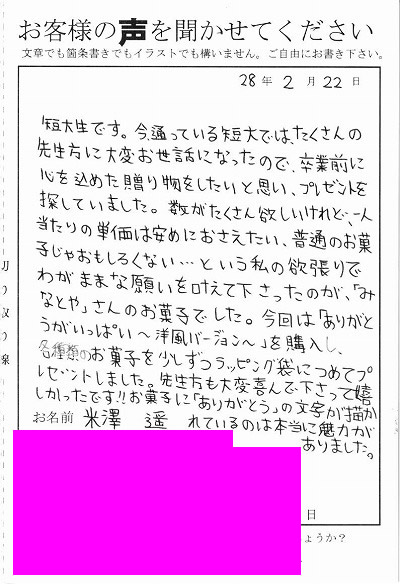 お客様の声を聞かせてください
文章でも箇条書きでもイラストでも構いません。ご自由にお書き下さい。
28年 2月 22日
短大生です。今、通っている短大では、たくさんの
先生方に大変お世話になったので、卒業前に
心を込めた贈り物をしたいと思い、プレゼントを
探していました。数がたくさん欲しいけれど、一人
当たりの単価は安めにおさえたい、普通のお菓
子じゃおもしろくない…という私の欲張りで
わがままな願いを叶えて下さったのが、「み
なとや」さんのお菓子でした。今回は「ありがと
うがいっぱい〜洋風バージョン〜」を購入し、
各種類のお菓子を少しずつラッピング袋につめてプ
レゼントしました。先生方も大変喜んで下さって嬉
しかったです!!お菓子に「ありがとう」の文字が描か
お名前 米澤 遥 れているのは本当に魅力が
ありました。
日
ょうか?